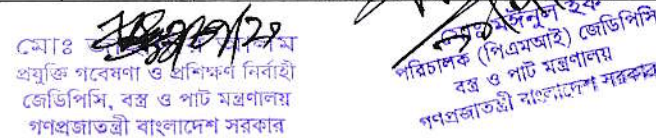 মোঃ
প্রযুক্তি গবেষণা ও প্রশিক্ষণ নির্বাহী
জেডিপিসি, বস্ত্র ও পাট মন্ত্রণালয়
গণপ্রজাতন্ত্রী বাংলাদেশ সরকার
মঈনুল হক
পরিচালক (পিএমআই) জেডিপিসি
বস্ত্র ও পাট মন্ত্রণালয়
গণপ্রজাতন্ত্রী বাংলাদেশ সরকার